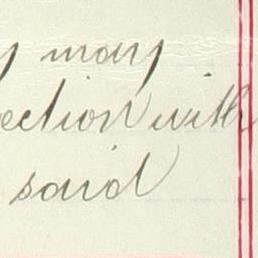 y may
ection with
said